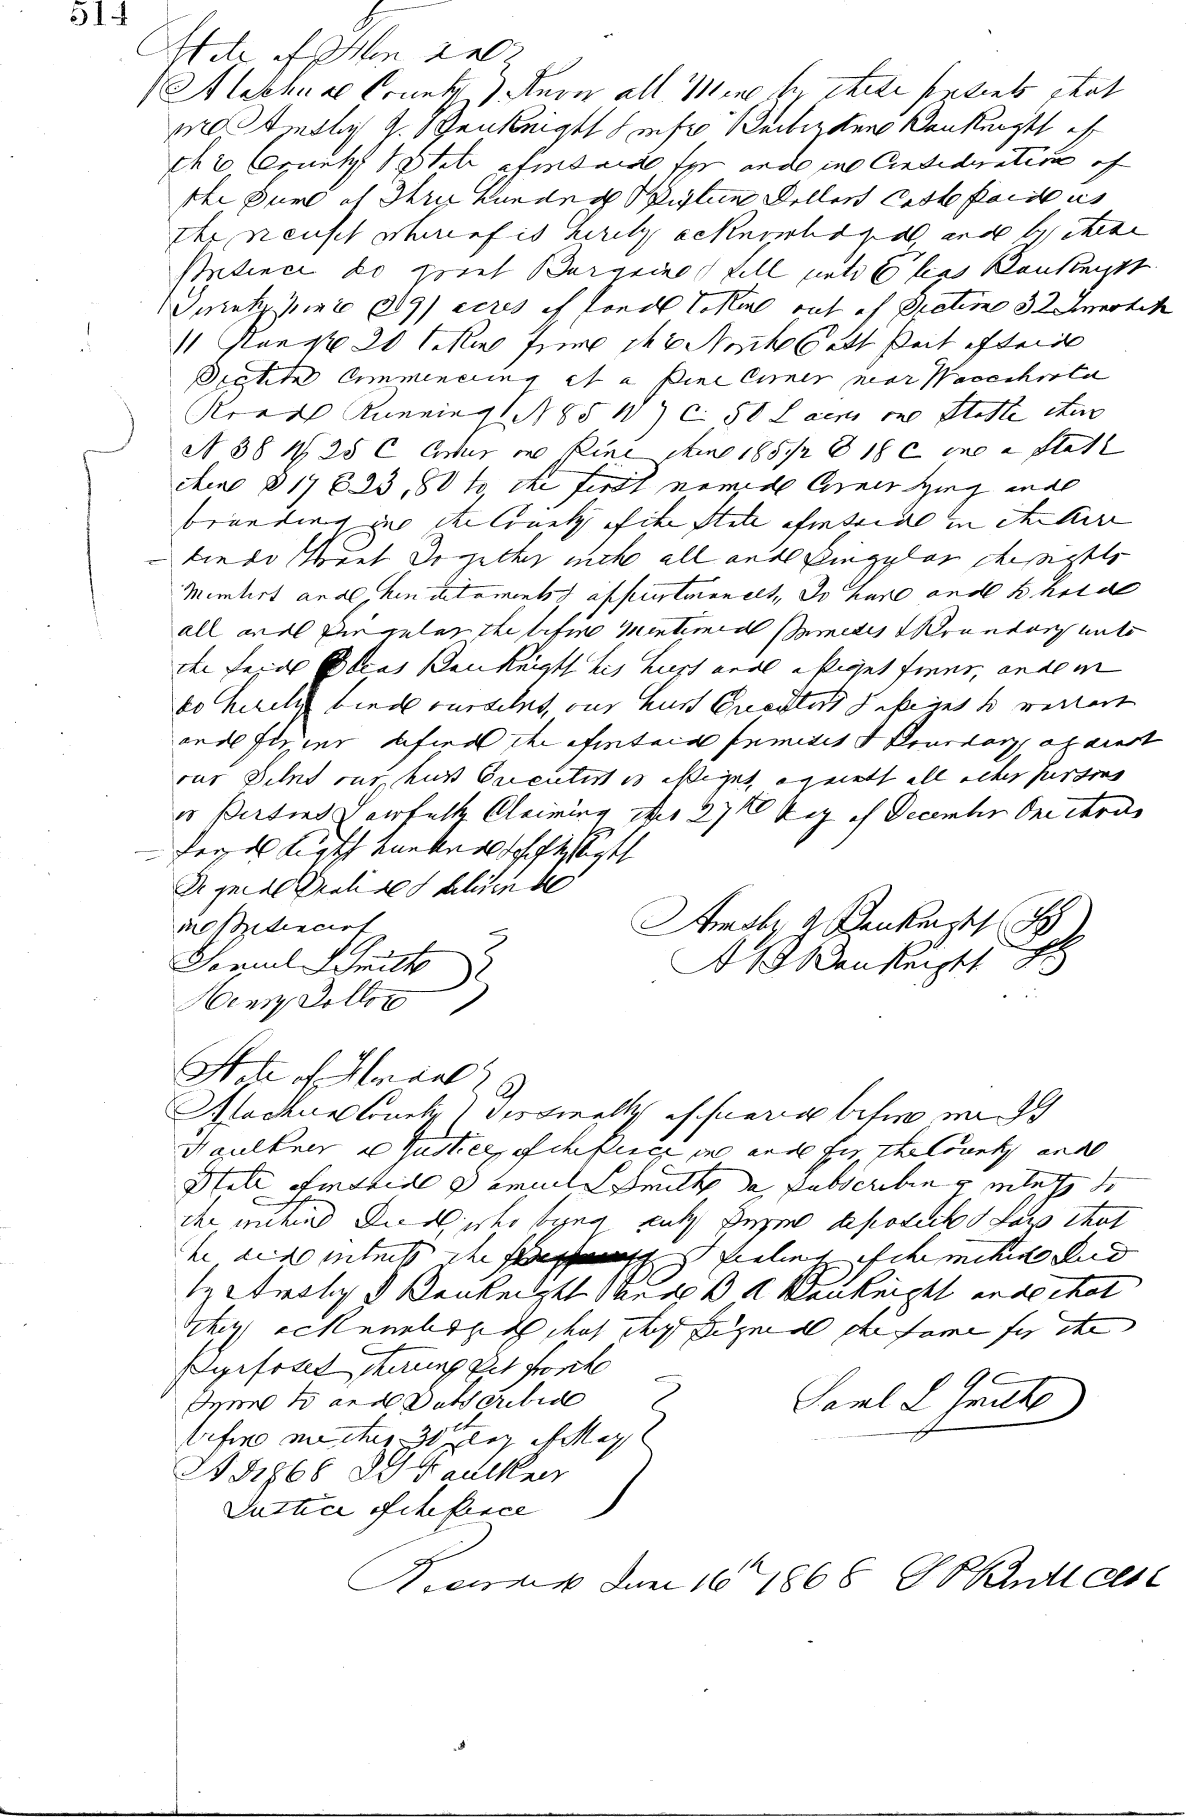 514
State of Florida
Alachua County } Know all Men by these presents that
we Amsley J. Bauknight & wife Bauknight of
the County & State aforesaid for and in Consideration of
the Sum of Three hundred & Sixteen Dollars Cash paid us
the receipt whereof is hereby acknowledged, and by these
presence do grant Bargain & Sell unto Elias Bauknight
Twenty Nine (29) acres of land taken out of Section 32 Township
11 Range 20 taken from the North East Part of said
Section Commencing at a Pine Corner near Waccahoota
Road Running N 85 W 7 C. 50 L on a Stake then
N 38 W 25 C Corner on Pine then 185 1/2 E 18 C on a Stake
then S 17 E 23,80 to the first named Corner lying and
bounding in the County of the State aforesaid in the
Grant Together with all and Singular the rights
Members and hereditaments & appurtenances, To have and to hold
all and Singular the before Mentioned Premises & Boundary unto
the Said Elias Bauknight his heirs and assigns forever, and we
do hereby bind ourselves, our heirs Executors & assigns to warrant
and forever defend the aforesaid premises & Boundary against
our Selves our heirs Executors or assigns, against all other persons
or Persons Lawfully Claiming this 27th day of December One thous
and Eight hundred & fifty Eight
Signed Sealed & delivered
in Presence of
Samuel L Smith
Henry
Amsley J Bauknight
A B Bauknight
State of Florida
Alachua County } Personally appeared before me J G
Faulkner a Justice of the Peace in and for the County and
State aforesaid Samuel L Smith a Subscribing witness to
the within Deed, who being duly Sworn deposeth & Says that
he did witness the & Sealing of the within Deed
by Amsley J Bauknight and B A Bauknight and that
they acknowledged that they Signed the Same for the
Purposes therein Set forth
Sworn to and Subscribed
before me this 30th day of May
A D 1868 J G Faulkner
Justice of the Peace
Saml L Smith
Recorded June 16th 1868